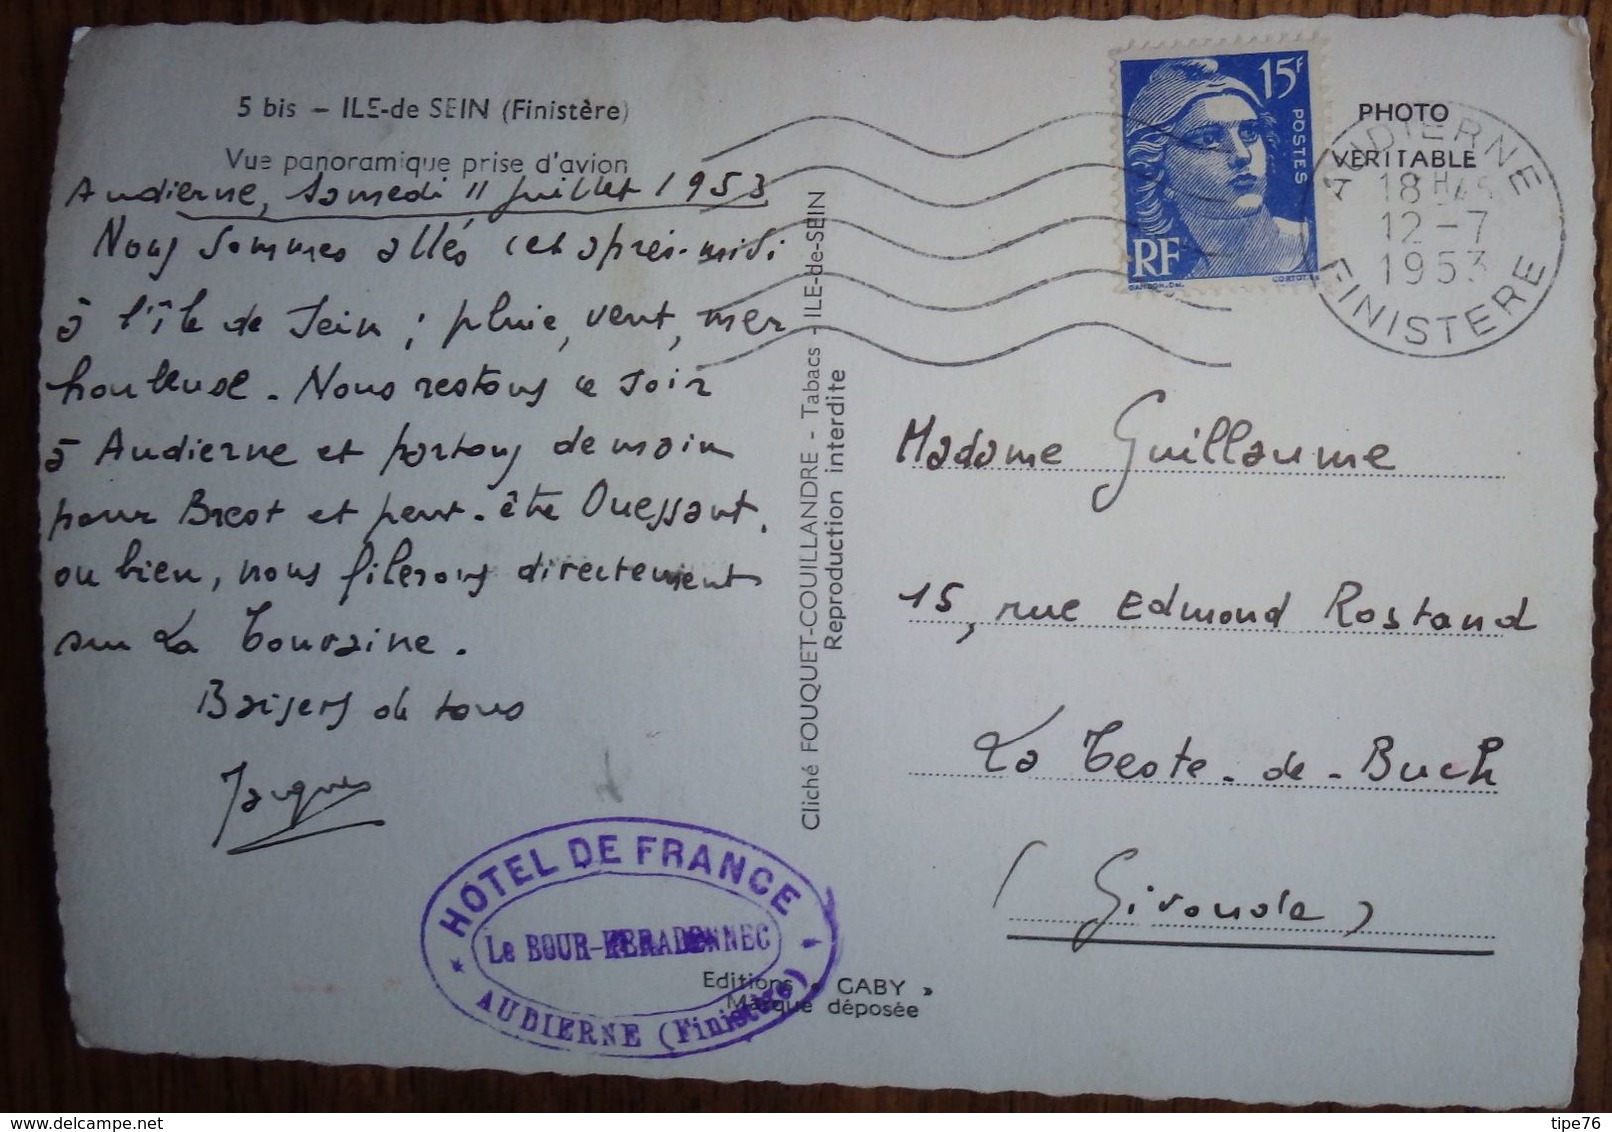 5 bis – ILE-de SEIN (Finistère)
Vue panoramique prise d'avion
Audierne, Samedi 11 juillet 1953
Nous sommes allés cet après-midi
à l'île de Sein ; pluie, vent, mer
houleuse. Nous restons ce soir
à Audierne et partons demain
pour Brest et peut-être Ouessant.
ou bien, nous filerons directement
sur La Touraine.
Baisers de tous
Jacques
HOTEL DE FRANCE
Le BOUR-KERADENNEC
AUDIERNE (Finistère)
Editions « GABY »
Marque déposée
Cliché FOUQUET-COUILLANDRE - Tabacs - ILE-de-SEIN
Reproduction interdite
15F
POSTES
RF
GANDON. Del.
CORTOT. Sc
PHOTO
VERITABLE
AUDIERNE
18H
12-7
1953
FINISTERE
Madame Guillaume
15, rue Edmond Rostand
La Teste-de-Buch
(Gironde)
tipe76